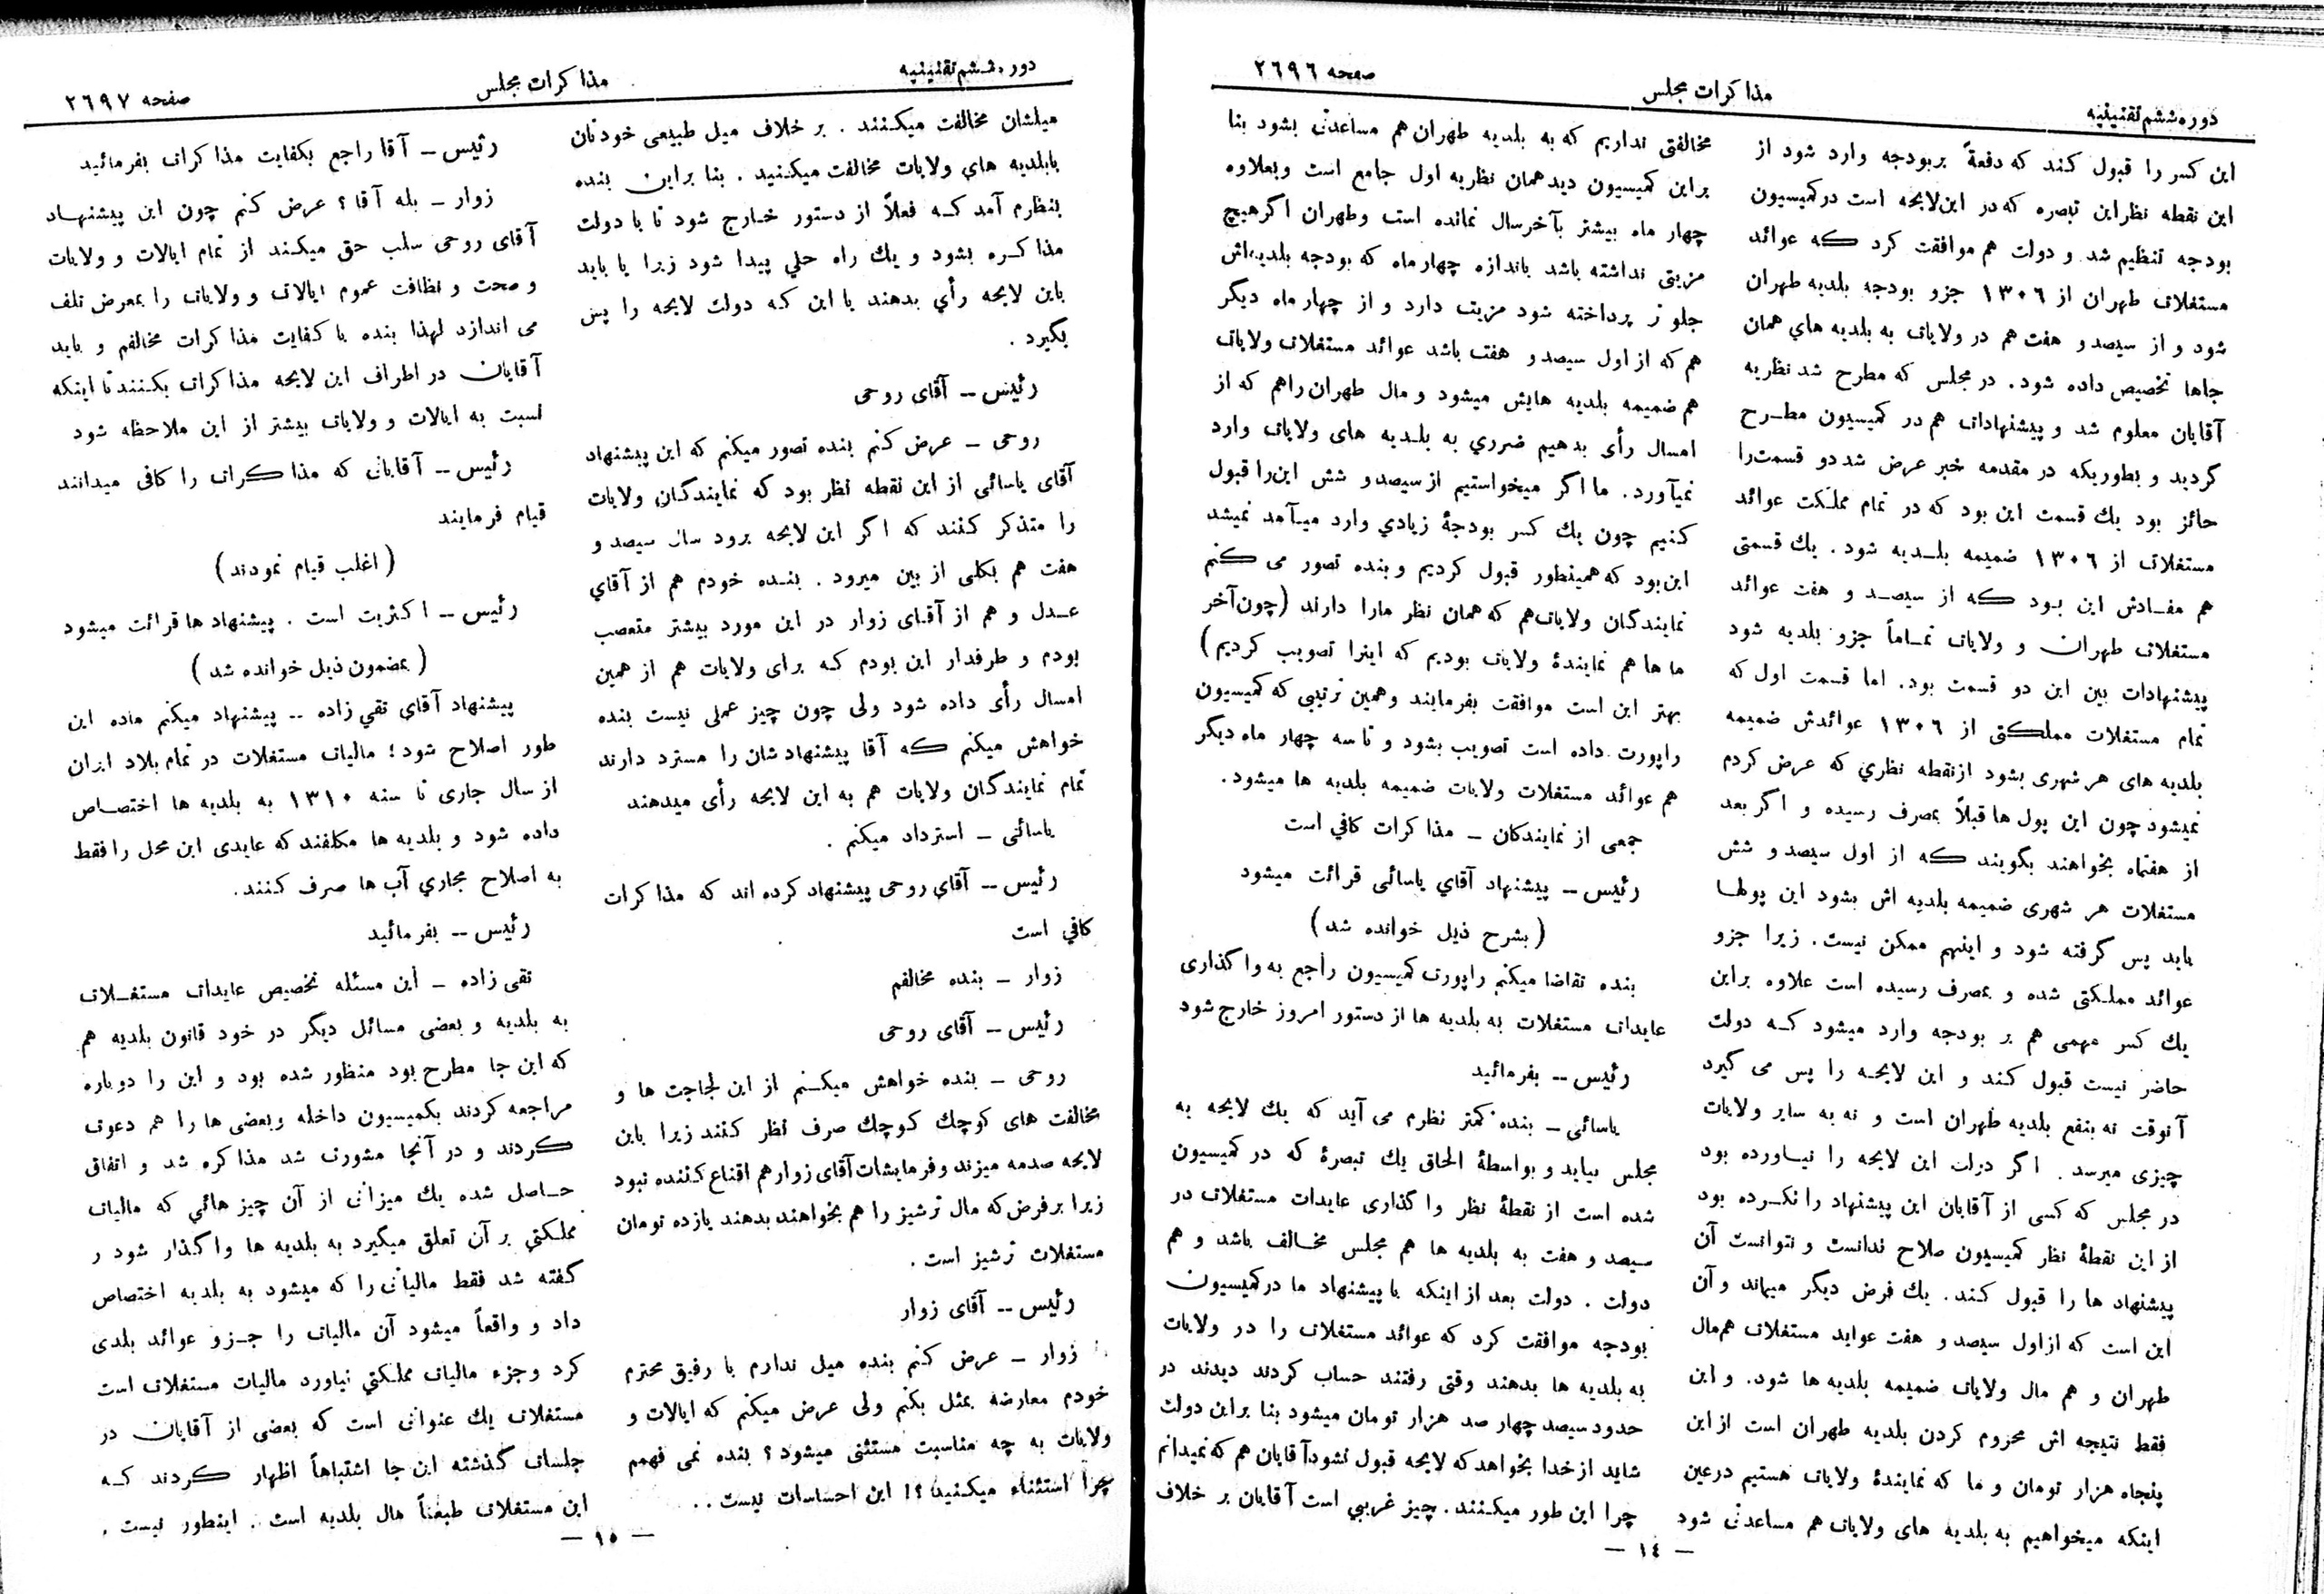 دوره ششم تقنینیه
مذاکرات مجلس
صفحه ۲۶۹۶
این کسر را قبول کند که دفعةً بربودجه وارد شود از
این نقطه نظر این تبصره که در این لایحه است در کمیسیون
بودجه تنظیم شد و دولت هم موافقت کرد که عوائد
مستغلات طهران از ۱۳۰۶ جزو بودجه بلدیه طهران
شود و از سیصد و هفت هم در ولایات به بلدیه های همان
جاها تخصیص داده شود. در مجلس که مطرح شد نظریه
آقایان معلوم شد و پیشنهادات هم در کمیسیون مطرح
گردید و بطوریکه در مقدمه خبر عرض شد دو قسمت را
حائز بود یك قسمت این بود که در تمام مملکت عوائد
مستغلات از ۱۳۰۶ ضمیمه بلدیه شود. یك قسمتی
هم مفادش این بود که از سیصد و هفت عوائد
مستغلات طهران و ولایات تماماً جزو بلدیه شود
پیشنهادات بین این دو قسمت بود. اما قسمت اول که
تمام مستغلات مملکتی از ۱۳۰۶ عوائدش ضمیمه
بلدیه های هر شهری بشود ازنقطه نظري که عرض کردم
نمیشود چون این پول ها قبلاً بمصرف رسیده و اگر بعد
از هفتماه بخواهند بگویند که از اول سیصد و شش
مستغلات هر شهری ضمیمه بلدیه اش بشود این پولها
باید پس گرفته شود و اینهم ممکن نیست. زیرا جزو
عوائد مملکتی شده و بمصرف رسیده است علاوه براین
یك کسر مهمی هم بر بودجه وارد میشود که دولت
حاضر نیست قبول کند و این لایحه را پس می گیرد
آنوقت نه بنفع بلدیه طهران است و نه به سایر ولایات
چیزی میرسد. اگر دولت این لایحه را نیاورده بود
در مجلس که کسی از آقایان این پیشنهاد را نکرده بود
از این نقطهٔ نظر کمیسیون صلاح ندانست و نتوانست آن
پیشنهاد ها را قبول کند. یك فرض دیگر میماند و آن
این است که از اول سیصد و هفت عواید مستغلات هم مال
طهران و هم مال ولایات ضمیمه بلدیه ها شود. و این
فقط نتیجه اش محروم کردن بلدیه طهران است از این
پنجاه هزار تومان و ما که نمایندهٔ ولایات هستیم درعین
اینکه میخواهیم به بلدیه های ولایات هم مساعدتی شود
مخالفتی نداریم که به بلدیه طهران هم مساعدتی بشود بنا
براین کمیسیون دید همان نظریه اول جامع است وبعلاوه
چهار ماه بیشتر بآخر سال نمانده است وطهران اگرهیچ
مزیتی نداشته باشد باندازه چهارماه که بودجه بلدیه‌اش
جلو تر پرداخته شود مزیت دارد و از چهار ماه دیگر
هم که از اول سیصد و هفت باشد عوائد مستغلات ولایات
هم ضمیمه بلدیه هایش میشود و مال طهران راهم که از
امسال رأی بدهیم ضرری به بلدیه های ولایات وارد
نمیآورد. ما اگر میخواستیم ازسیصد و شش این‌را قبول
کنیم چون یك کسر بودجهٔ زیادي وارد میآمد نمیشد
این بود که همینطور قبول کردیم و بنده تصور می کنم
نمایندگان ولایات هم که همان نظر مارا دارند (چون آخر
ما ها هم نمایندهٔ ولایات بودیم که اینرا تصویب کردیم)
بهتر این است موافقت بفرمایند وهمین ترتیبی که کمیسیون
راپورت داده است تصویب بشود و تا سه چهار ماه دیگر
هم عوائد مستغلات ولایات ضمیمه بلدیه ها میشود.
جمعی از نمایندگان ـ مذاکرات کافي است
رئیس ـ پیشنهاد آقاي یاسائی قرائت میشود
(بشرح ذیل خوانده شد)
بنده تقاضا میکنم راپورت کمیسیون راجع به واگذاری
عایدات مستغلات به بلدیه ها از دستور امروز خارج شود
رئیس ـ بفرمائید
یاسائی ـ بنده کمتر نظرم می آید که یك لایحه به
مجلس بیاید و بواسطهٔ الحاق یك تبصرهٔ که در کمیسیون
شده است از نقطهٔ نظر واگذاری عایدات مستغلات در
سیصد و هفت به بلدیه ها هم مجلس مخالف باشد و هم
دولت. دولت بعد از اینکه با پیشنهاد ما در کمیسیون
بودجه موافقت کرد که عوائد مستغلات را در ولایات
به بلدیه ها بدهند وقتی رفتند حساب کردند دیدند در
حدود سیصد چهار صد هزار تومان میشود بنا براین دولت
شاید از خدا بخواهد که لایحه قبول نشود آقایان هم که نمیدانم
چرا این طور میکنند. چیز غریبي است آقایان بر خلاف
ـ ۱۴ ـ
دوره ششم تقنینیه
مذاکرات مجلس
صفحه ۲۶۹۷
میلشان مخالفت میکنند. بر خلاف میل طبیعی خودتان
بابلدیه های ولایات مخالفت میکنید. بنا براین بنده
بنظرم آمد که فعلاً از دستور خارج شود تا با دولت
مذاکره بشود و یك راه حلي پیدا شود زیرا یا باید
باین لایحه رأي بدهند یا این که دولت لایحه را پس
بگیرد.
رئیس ـ آقای روحی
روحی ـ عرض کنم بنده تصور میکنم که این پیشنهاد
آقای یاسائی از این نقطه نظر بود که نمایندگان ولایات
را متذکر کنند که اگر این لایحه برود سال سیصد و
هفت هم بکلی از بین میرود. بنده خودم هم از آقاي
عدل و هم از آقای زوار در این مورد بیشتر متعصب
بودم و طرفدار این بودم که برای ولایات هم از همین
امسال رأی داده شود ولی چون چیز عملی نیست بنده
خواهش میکنم که آقا پیشنهادشان را مسترد دارند
تمام نمایندگان ولایات هم به این لایحه رأی میدهند
یاسائی ـ استرداد میکنم.
رئیس ـ آقای روحی پیشنهاد کرده اند که مذاکرات
کافي است
زوار ـ بنده مخالفم
رئیس ـ آقای روحی
روحی ـ بنده خواهش میکنم از این لجاجت ها و
مخالفت های کوچك کوچك صرف نظر کنند زیرا باین
لایحه صدمه میزند و فرمایشات آقای زوار هم اقناع کننده نبود
زیرا برفرض که مال ترشیز را هم بخواهند بدهند یازده تومان
مستغلات ترشیز است.
رئیس ـ آقای زوار
زوار ـ عرض کنم بنده میل ندارم با رفیق محترم
خودم معارضه بمثل بکنم ولی عرض میکنم که ایالات و
ولایات به چه مناسبت مستثنی میشود؟ بنده نمی فهمم
چرا استثناء میکنید؟! این احساسات نیست..
رئیس ـ آقا راجع بکفایت مذاکرات بفرمائید
زوار ـ بله آقا؟ عرض کنم چون این پیشنهاد
آقای روحی سلب حق میکند از تمام ایالات و ولایات
و صحت و نظافت عموم ایالات و ولایات را بمعرض تلف
می اندازد لهذا بنده با کفایت مذاکرات مخالفم و باید
آقایان در اطراف این لایحه مذاکرات بکنند تا اینکه
نسبت به ایالات و ولایات بیشتر از این ملاحظه شود
رئیس ـ آقایانی که مذاکرات را کافی میدانند
قیام فرمایند
(اغلب قیام نمودند)
رئیس ـ اکثریت است. پیشنهاد ها قرائت میشود
(بمضمون ذیل خوانده شد)
پیشنهاد آقای تقي زاده ـ پیشنهاد میکنم ماده این
طور اصلاح شود؛ مالیات مستغلات در تمام بلاد ایران
از سال جاری تا سنه ۱۳۱۰ به بلدیه ها اختصاص
داده شود و بلدیه ها مکلفند که عایدی این محل را فقط
به اصلاح مجاري آب ها صرف کنند.
رئیس ـ بفرمائید
تقی زاده ـ این مسئله تخصیص عایدات مستغلات
به بلدیه و بعضی مسائل دیگر در خود قانون بلدیه هم
که این جا مطرح بود منظور شده بود و این را دوباره
مراجعه کردند بکمیسیون داخله وبعضی ها را هم دعوت
کردند و در آنجا مشورت شد مذاکره شد و اتفاق
حاصل شده یك میزانی از آن چیز هائي که مالیات
مملکتي بر آن تعلق میگیرد به بلدیه ها واگذار شود و
گفته شد فقط مالیاتی را که میشود به بلدیه اختصاص
داد و واقعاً میشود آن مالیات را جزو عوائد بلدی
کرد وجزء مالیات مملکتي نیاورد مالیات مستغلات است
مستغلات یك عنوانی است که بعضی از آقایان در
جلسات گذشته این جا اشتباهاً اظهار کردند که
این مستغلات طبعاً مال بلدیه است. اینطور نیست.
ـ ۱۵ ـ